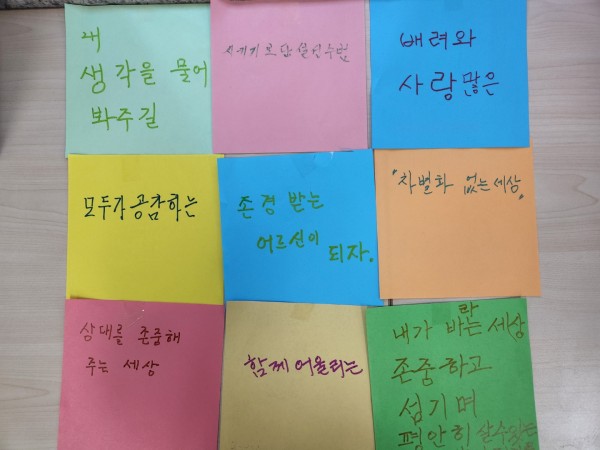 내
생각을 물어
봐주길
시키기보단 솔선수범
배려와
사랑많은
모두가공감하는
존경 받는
어르신이
되자.
"차별화 없는세상"
상대를 존중해
주는 세상
함께어울리는
내가 바라는 세상
존중하고
섬기며
평안히 살수있는